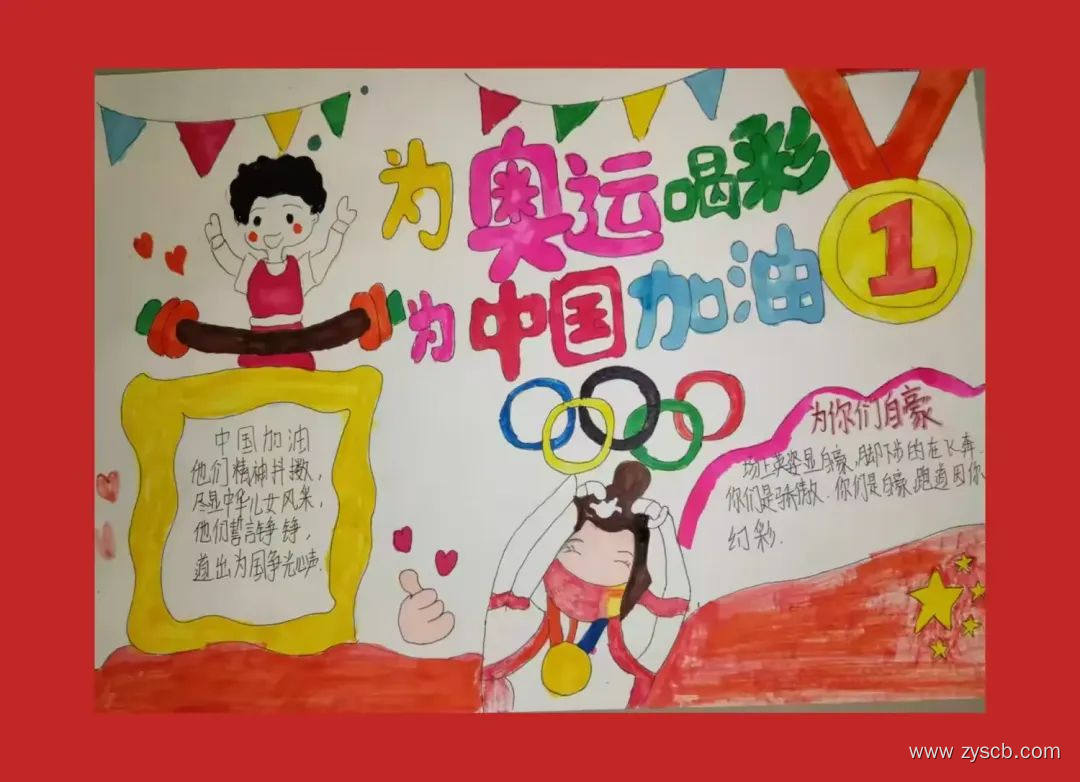 为奥运喝彩
为中国加油
1
中国加油
他们精神抖擞，
尽显中华儿女风采，
他们誓言铮铮，
道出为国争光心声.
为你们自豪
场上英姿显自豪，脚下步的在飞奔.
你们是骄傲.你们是自豪，跑道因你
幻彩.
www.zyscb.com